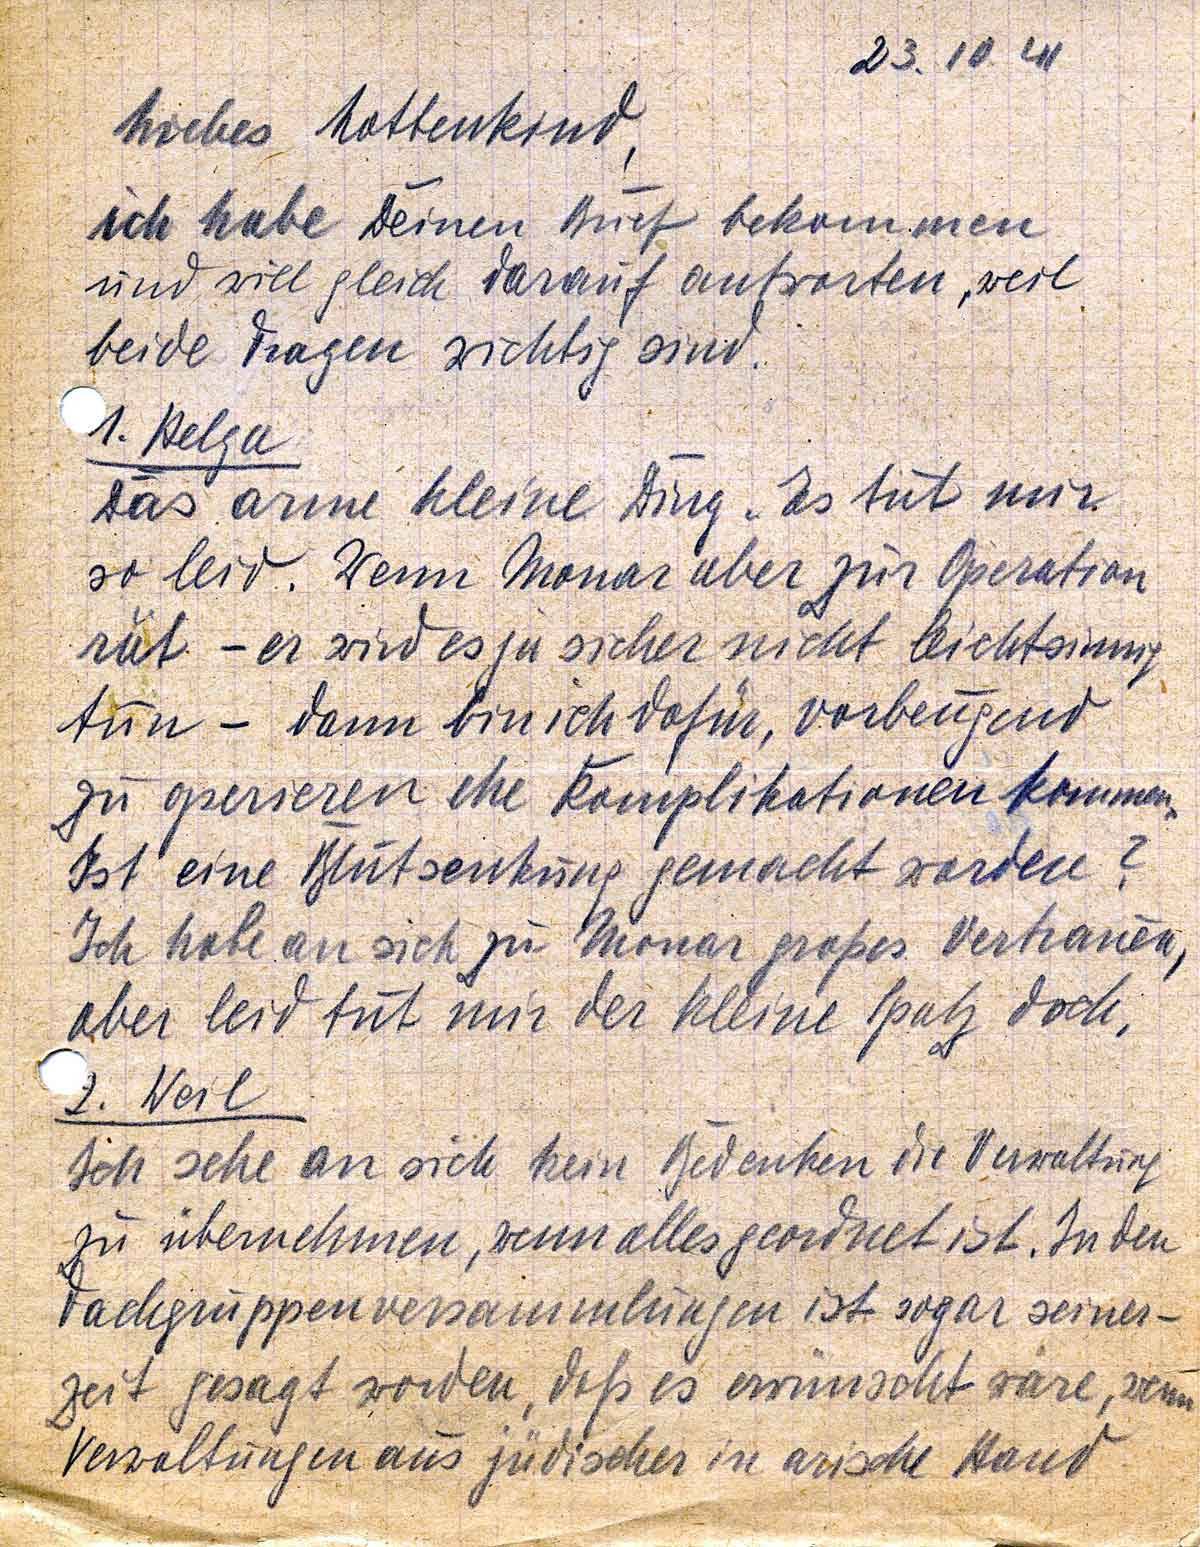 23. 10. 41
Liebes Lottenkind,
ich habe Deinen Brief bekommen
und will gleich darauf antworten, weil
beide Fragen wichtig sind.
1. Helga
Das arme kleine Ding. Es tut mir
so leid. Wenn Monar aber zur Operation
rät - er wird es ja sicher nicht leichtsinnig
tun - dann bin ich dafür, vorbeugend
zu operieren ehe Komplikationen kommen.
Ist eine Blutsenkung gemacht worden?
Ich habe an sich zu Monar großes Vertrauen,
aber leid tut mir der kleine Spatz doch.
2. Weil
Ich sehe an sich kein Bedenken die Verwaltung
zu übernehmen, wenn alles geordnet ist. In den
Fachgruppenversammlungen ist sogar seiner-
zeit gesagt worden, daß es erwünscht wäre, wenn
Verwaltungen aus jüdischer in arische Hand